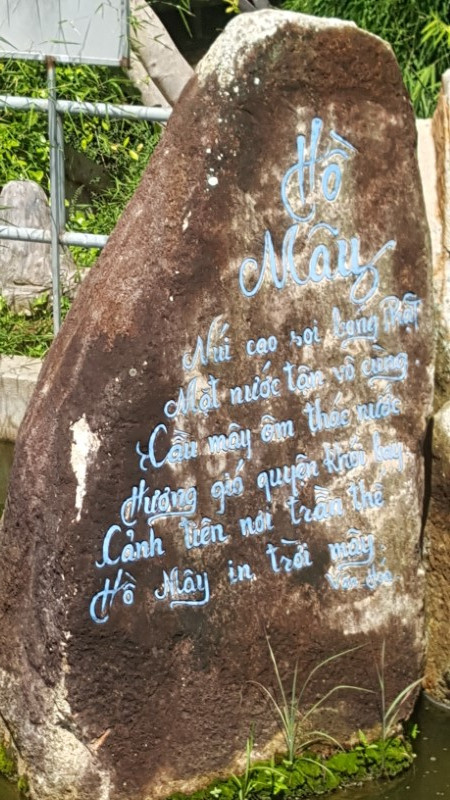 Hồ
Mây
Núi cao soi bóng Phật
Mặt nước tận vô cùng.
Cầu mây ôm thác nước
Hương gió quyện khắp bay
Cảnh tiên nơi trần thế
Hồ Mây in trời mây